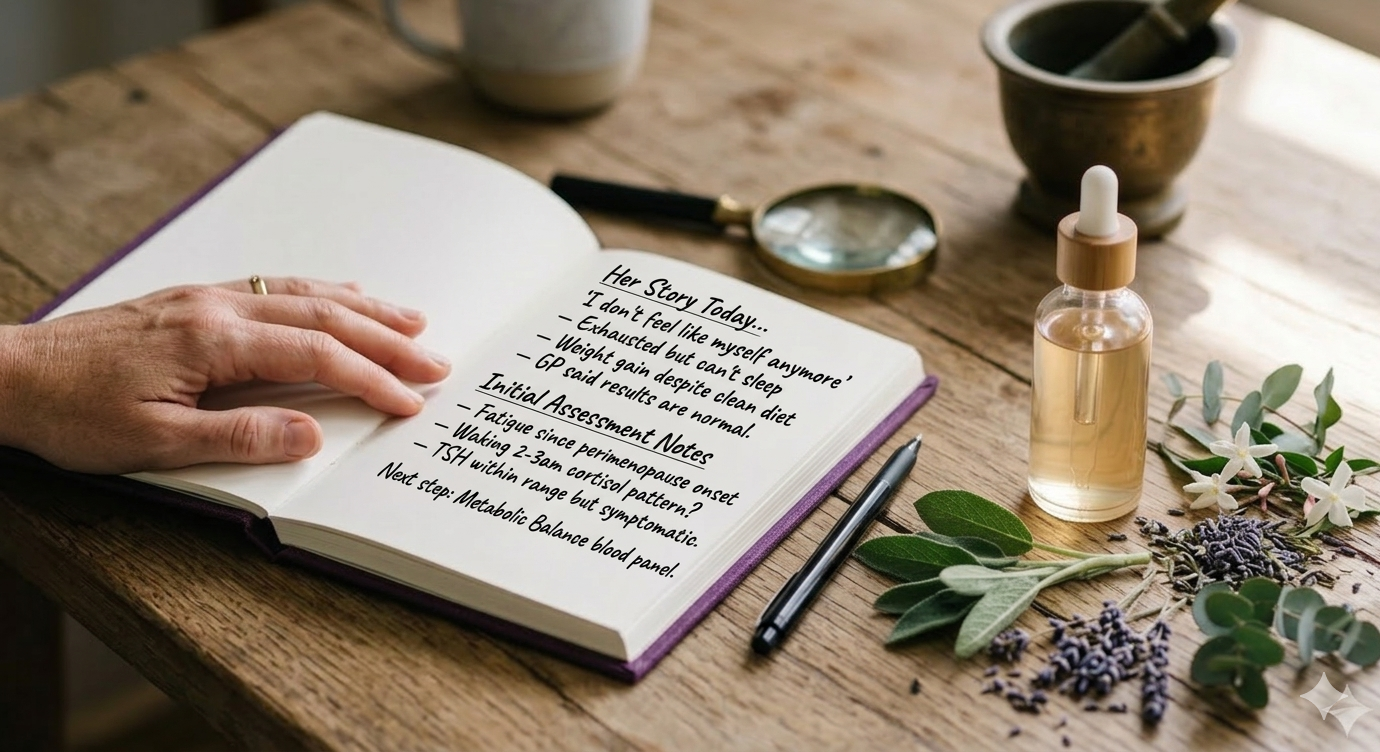 Her Story Today...
'I don't feel like myself anymore'
– Exhausted but can't sleep
– Weight gain despite clean diet
– GP said results are normal.
Initial Assessment Notes
– Fatigue since perimenopause onset
– Waking 2-3am cortisol pattern?
– TSH within range but symptomatic.
Next step: Metabolic Balance blood panel.